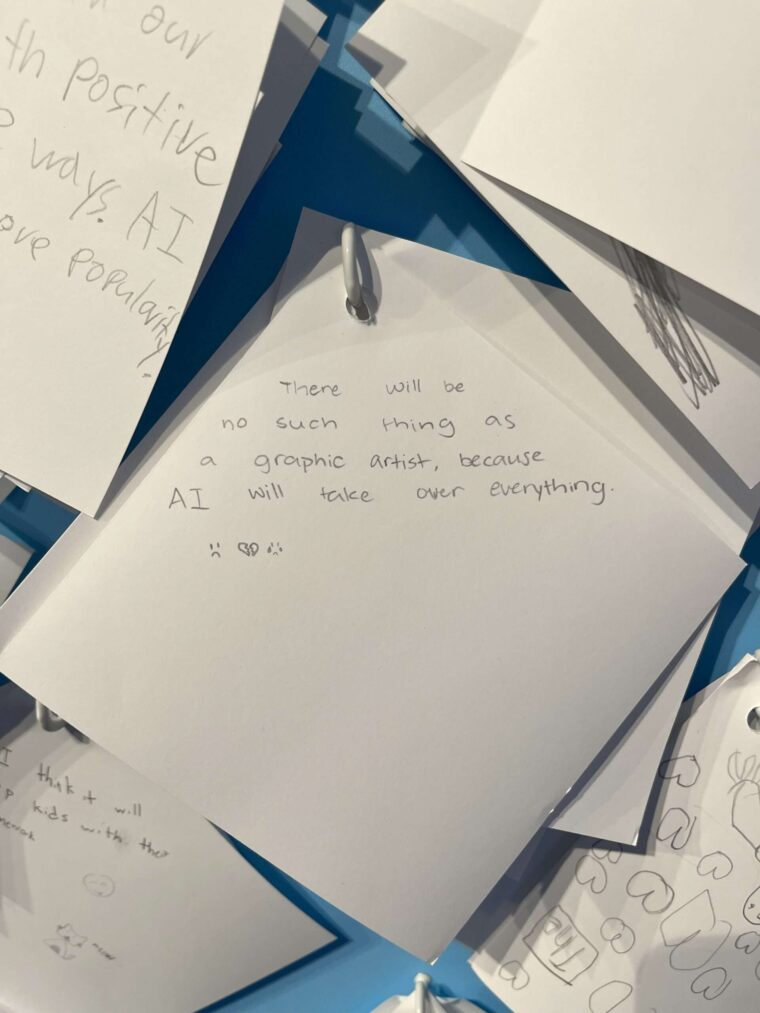 our
th positive
ways. AI
ove popularity.
There will be
no such thing as
a graphic artist, because
AI will take over everything.
I think it will
p kids with the
mework
meow
The